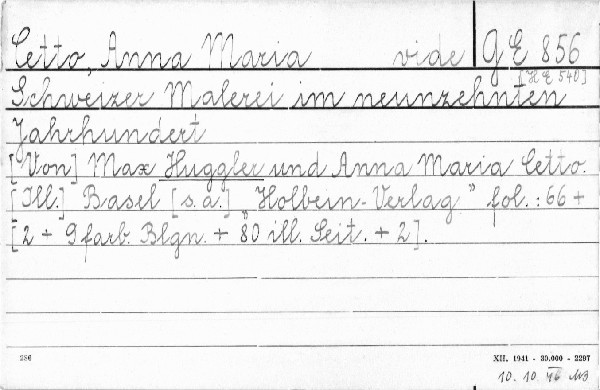 Cetto, Anna Maria vide GE 856
[HE 540]
Schweizer Malerei im neunzehnten
Jahrhundert
[Von] Max Huggler und Anna Maria Cetto.
[Ill.] Basel [s.a.] „Holbein-Verlag” fol.: 66 +
[2 + 9 farb. Blgn. + 80 ill. Seit. + 2].
286 XII. 1941 - 30.000 - 2297
10. 10. 46 MB